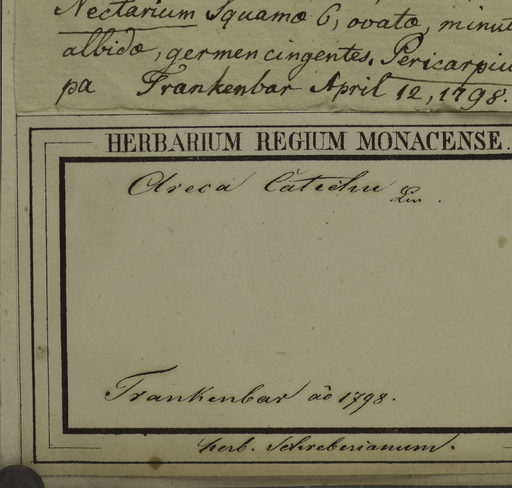 Nectarium Squamæ 6, ovatæ, minut
albidæ, germen cingentes. Pericarpiu
pa Frankenbar April 12, 1798.
HERBARIUM REGIUM MONACENSE.
Areca Catechu Lin.
Frankenbar ão 1798.
herb. Schreberianum.